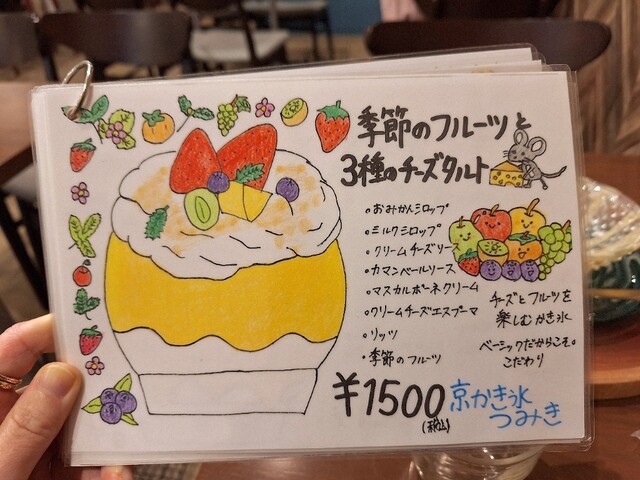 季節のフルーツと
3種のチーズタルト
おみかんシロップ
ミルクシロップ
クリームチーズソース
カマンベールソース
マスカルポーネクリーム
クリームチーズエスプーマ
リッツ
季節のフルーツ
チーズとフルーツを
楽しむかき氷
ベーシックだからこそ。
こだわり
¥1500
(税込)
京かき氷
つみき